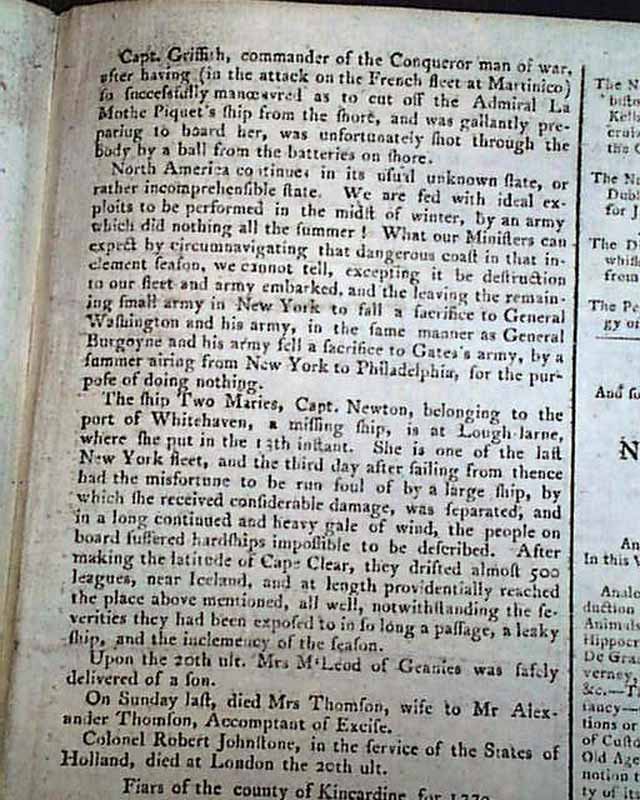 Capt. Griffith, commander of the Conqueror man of war,
after having (in the attack on the French fleet at Martinico)
ſo ſucceſsfully manœuvred as to cut off the Admiral La
Mothe Piquet's ſhip from the ſhore, and was gallantly pre-
paring to board her, was unfortunately ſhot through the
body by a ball from the batteries on ſhore.
North America continues in its uſual unknown ſtate, or
rather incomprehenſible ſtate. We are fed with ideal ex-
ploits to be performed in the midſt of winter, by an army
which did nothing all the ſummer! What our Miniſters can
expect by circumnavigating that dangerous coaſt in that in-
clement ſeaſon, we cannot tell, excepting it be deſtruction
to our fleet and army embarked, and the leaving the remain-
ing ſmall army in New York to fall a ſacrifice to General
Waſhington and his army, in the ſame manner as General
Burgoyne and his army fell a ſacrifice to Gates's army, by a
ſummer airing from New York to Philadelphia, for the pur-
poſe of doing nothing.
The ſhip Two Maries, Capt. Newton, belonging to the
port of Whitehaven, a miſſing ſhip, is at Lough-larne,
where ſhe put in the 13th inſtant. She is one of the laſt
New York fleet, and the third day after ſailing from thence
had the misfortune to be run foul of by a large ſhip, by
which ſhe received conſiderable damage, was ſeparated, and
in a long continued and heavy gale of wind, the people on
board ſuffered hardſhips impoſſible to be deſcribed. After
making the latitude of Cape Clear, they drifted almoſt 500
leagues, near Iceland, and at length providentially reached
the place above mentioned, all well, notwithſtanding the ſe-
verities they had been expoſed to in ſo long a paſſage, a leaky
ſhip, and the inclemency of the ſeaſon.
Upon the 20th ult. Mrs M'Leod of Geanies was ſafely
delivered of a ſon.
On Sunday laſt, died Mrs Thomſon, wife to Mr Alex-
ander Thomſon, Accomptant of Exciſe.
Colonel Robert Johnſtone, in the ſervice of the States of
Holland, died at London the 20th ult.
Fiars of the county of Kincardine, for 1779
The N
Kell
the C
The N
Dubl
for J
The D
whiſk
from
The Pe
gy or
And ſo
N
An
In this V
Analo
duction
Animals
Hippocr
De Gra
verney,
&c.—T
tancy—
tions or
of Cuſto
Old Age
notion t
ty of its